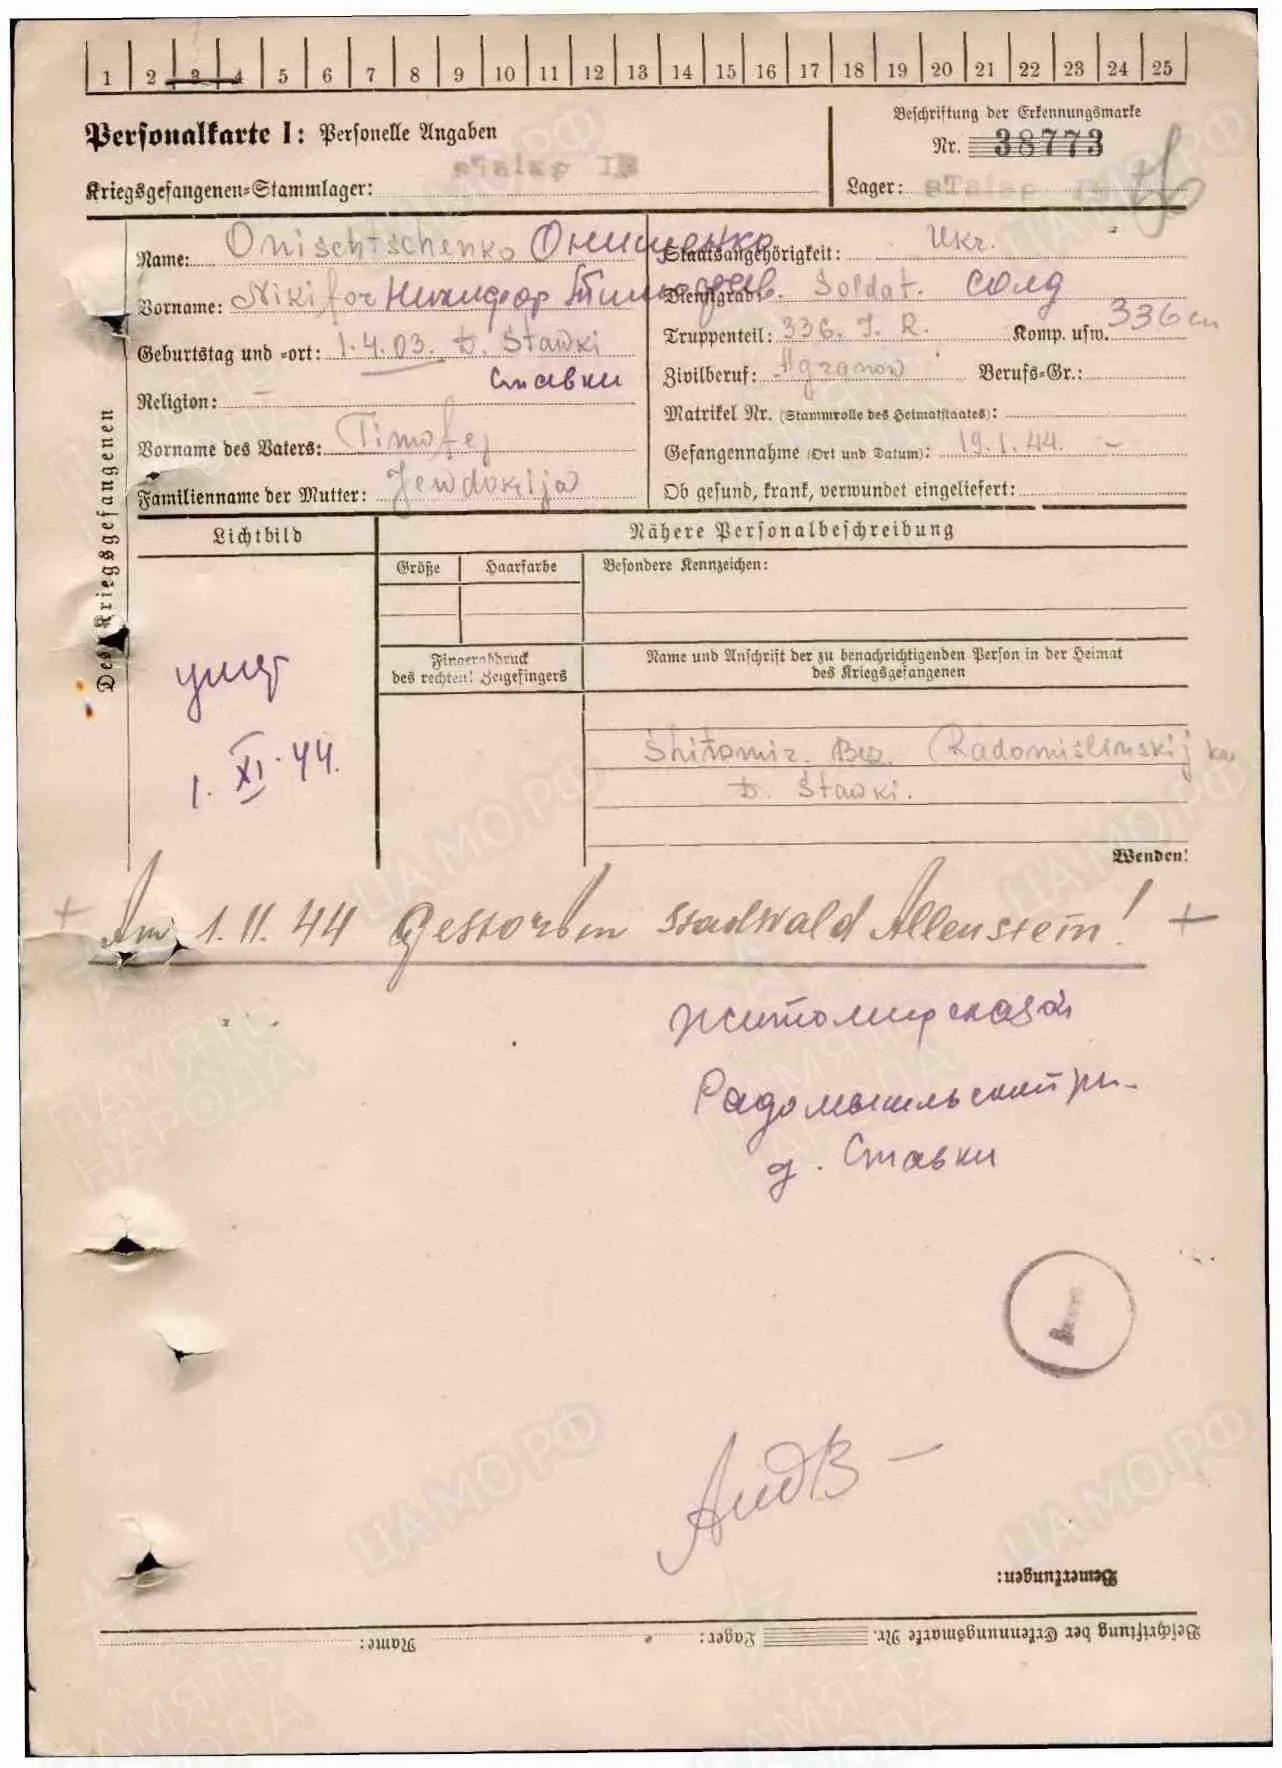 1 2 3 4 5 6 7 8 9 10 11 12 13 14 15 16 17 18 19 20 21 22 23 24 25
Personalkarte I: Personelle Angaben
Beschriftung der Erkennungsmarke
Nr. 38773
Kriegsgefangenen=Stammlager: Stalag I B
Lager: Stalag
Name: Onischtschenko Онищенко
Staatsangehörigkeit: Ukr.
Vorname: Nikifor Никифор Тимофеев.
Dienstgrad: Soldat. солд
Geburtstag und =ort: 1.4.03. D. Stawki
Ставки
Truppenteil: 336. J. R. Komp. usw. 336 сп
Zivilberuf: Berufs=Gr.:
Religion: —
Matrikel Nr. (Stammrolle des Heimatstaates):
Vorname des Vaters: Timofej
Gefangennahme (Ort und Datum): 19.1.44. —
Familienname der Mutter: Jewdokija
Ob gesund, krank, verwundet eingeliefert:
Des Kriegsgefangenen
Lichtbild
Nähere Personalbeschreibung
Größe Haarfarbe Besondere Kennzeichen:
Fingerabdruck
des rechten! Zeigefingers
Name und Anschrift der zu benachrichtigenden Person in der Heimat
des Kriegsgefangenen
умер
1. XI. 44.
Shitomir. Bez. Radomislinskij
D. Stawki.
Wenden!
+ Am 1.11.44 Gestorben Stadwald Allenstein! +
Житомирская
Радомышльский рн.
д. Ставки
1
Bemerkungen:
Beschriftung der Erkennungsmarke Nr. Lager: Name:
ЦАМО.РФ
ПАМЯТЬ
НАРОДА